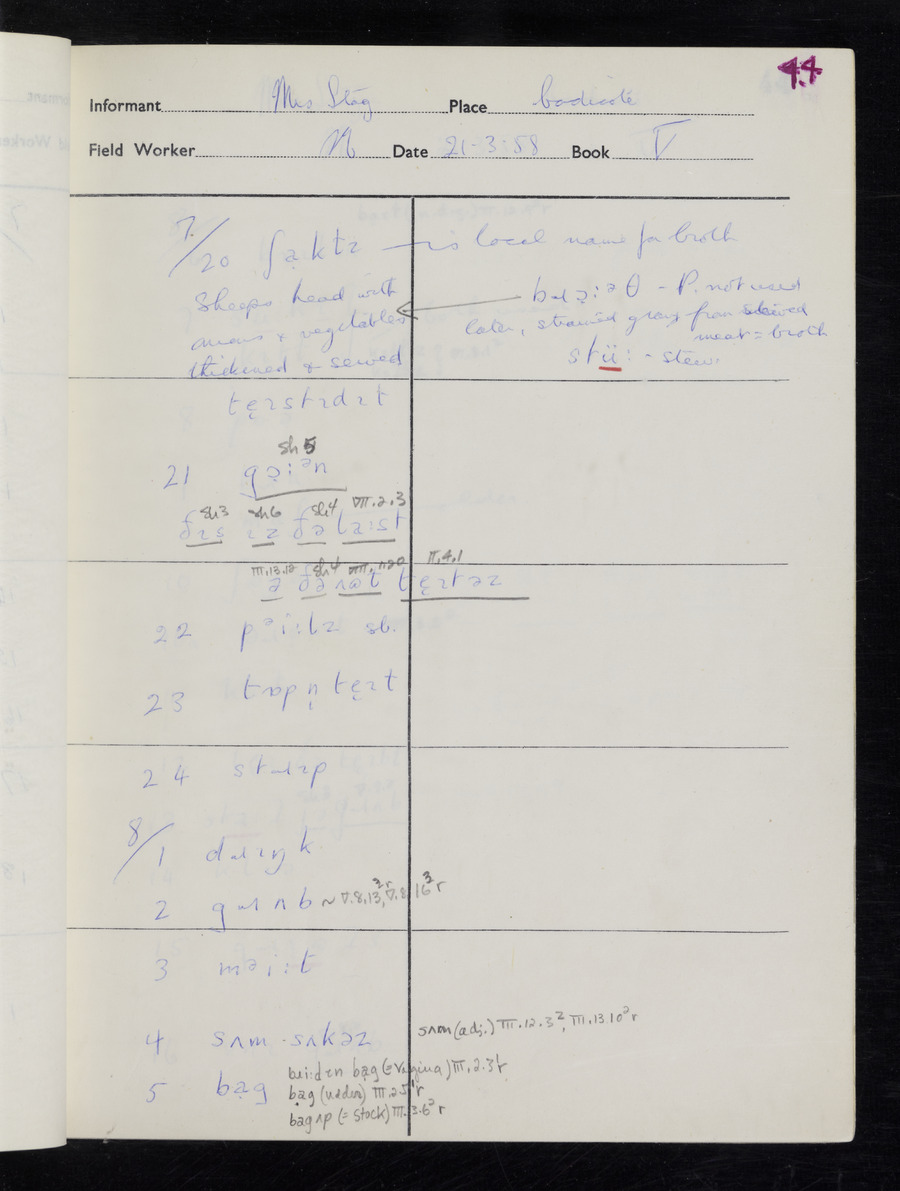 44
Informant Mrs Stag Place bodicote
Field Worker N Date 21-3-58 Book V
7/20 fąktɪ — is local name for broth
Sheeps head with
onions & vegetables
thickened & served
bɹɔ̣:ᵊθ - P. not used
later, strained gravy from stewed
meat = broth
stü: - stew.
tẹɪstɪdɪt
sh 5
21 gɔ̣:ᵊn
sh3 sh6 sh4 VII.2.3
ðɪs ɪz ðə la̤:st
III.13.12 sh4 II.4.1
22 pᵊi:lɪ sb.
23 tɒpn̩ tẹɪt
24 stɹɪp
8/1 dɹɪŋk
2 gɹʌb ~ V.8.13²r, V.8.16³r
3 mᵊi:t
4 sʌm · sʌkəz sʌm (adj.) III.12.3², III.13.10²r
5 bąg bɹi:dɪn bąg (= vagina) III.2.3¹r
bąg (udder) III.2.5¹r
bągʌp (= stock) III.3.6²r